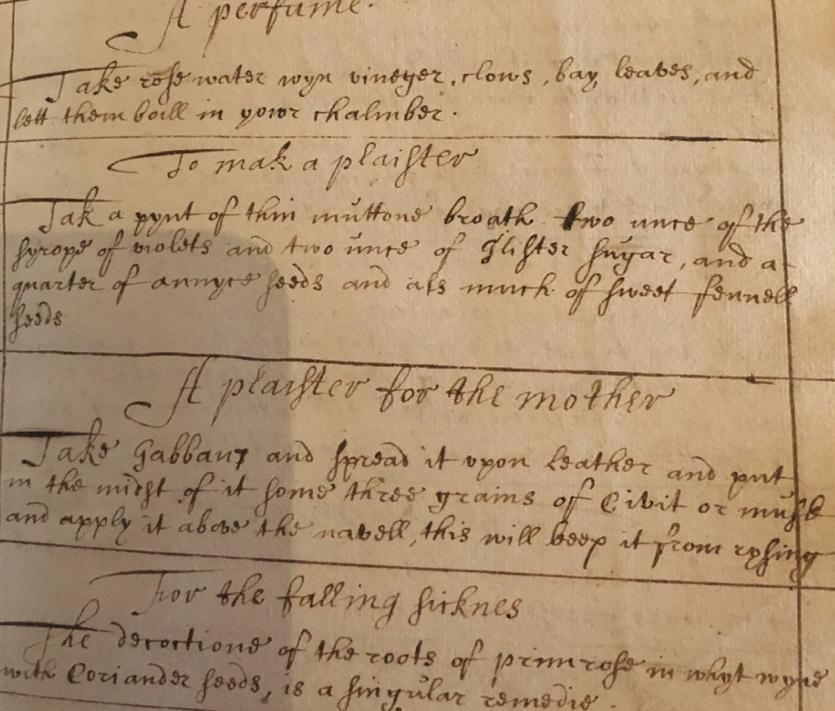 A perfume.
Take rose water wyn vineger, clows, bay leaves, and
lett them boill in yowr chalmber.
To mak a plaister
Tak a pynt of thin muttone broath two unce of the
syrope of violets and two unce of Glister sugar, and a
quarter of annyce seeds and als much of sweet fennell
seeds
A plaister for the mother
Take and spread it upon leather and putt
in the midst of it some three grains of Civit or musk
and apply it above the navell, this will keep it from rysing
For the falling sicknes
The decoctione of the roots of primrose in whyt wyne
with Coriander seeds, is a singular remedie.